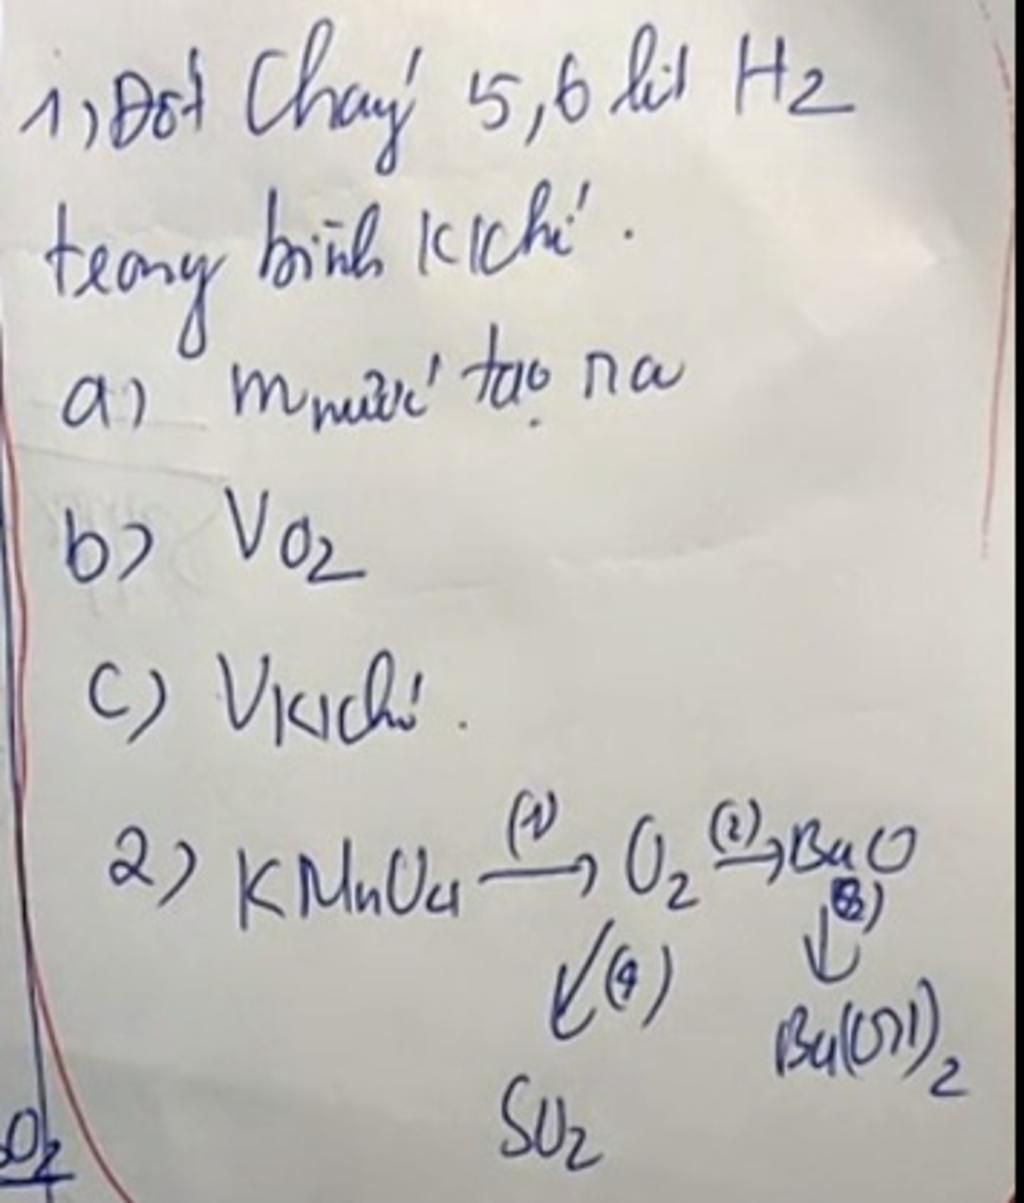 1) Đốt Cháy 5,6 lít H2
trong bình KKhí.
a) m nước tạo ra
b) VO2
c) VKKhí.
2) KMnO4 (1)→ O2 (2)→ BaO
↙(4) ↓(3)
Ba(OH)2
SO2
O2